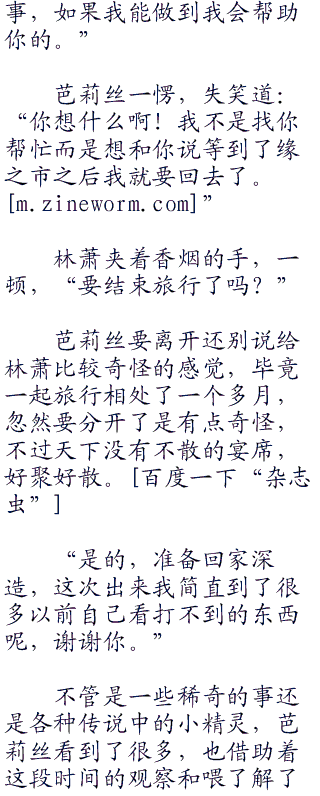 事，如果我能做到我会帮助
你的。”
芭莉丝一愣，失笑道：
“你想什么啊！我不是找你
帮忙而是想和你说等到了缘
之市之后我就要回去了。
[m.zineworm.com]”
林萧夹着香烟的手，一
顿，“要结束旅行了吗？”
芭莉丝要离开还别说给
林萧比较奇怪的感觉，毕竟
一起旅行相处了一个多月，
忽然要分开了是有点奇怪，
不过天下没有不散的宴席，
好聚好散。[百度一下“杂志
虫”]
“是的，准备回家深
造，这次出来我简直到了很
多以前自己看打不到的东西
呢，谢谢你。”
不管是一些稀奇的事还
是各种传说中的小精灵，芭
莉丝看到了很多，也借助着
这段时间的观察和喂了解了